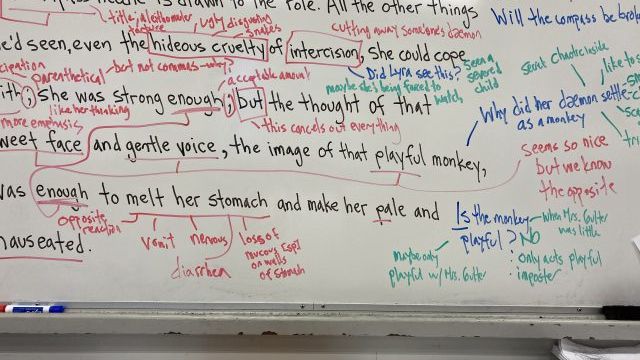 needle is drawn to the role. All the other things
Will the compass be brok
title, alethiometer
torture
ugly disgusting
snakes
cutting away someone's daemon
e'd seen, even the hideous cruelty of intercision, she could cope
parenthetical
but not commas-why?
acceptable amount
Did Lyra see this?
maybe she's being forced to watch
seen a severed child
strict
inside
like to
ith; she was strong enough; but the thought of that
like her thinking
more emphasis
this cancels out everything
Why did her daemon settle
as a monkey
weet face and gentle voice, the image of that playful monkey,
seems so nice
but we know
the opposite
was enough to melt her stomach and make her pale and
opposite reaction
vomit
nervous
diarrhea
loss of
mucous
on walls
of stomach
nauseated.
Is the monkey
playful? No
when Mrs. Coulter
was little
: only acts playful
: imposter
maybe only
playful w/ Mrs. Coulter